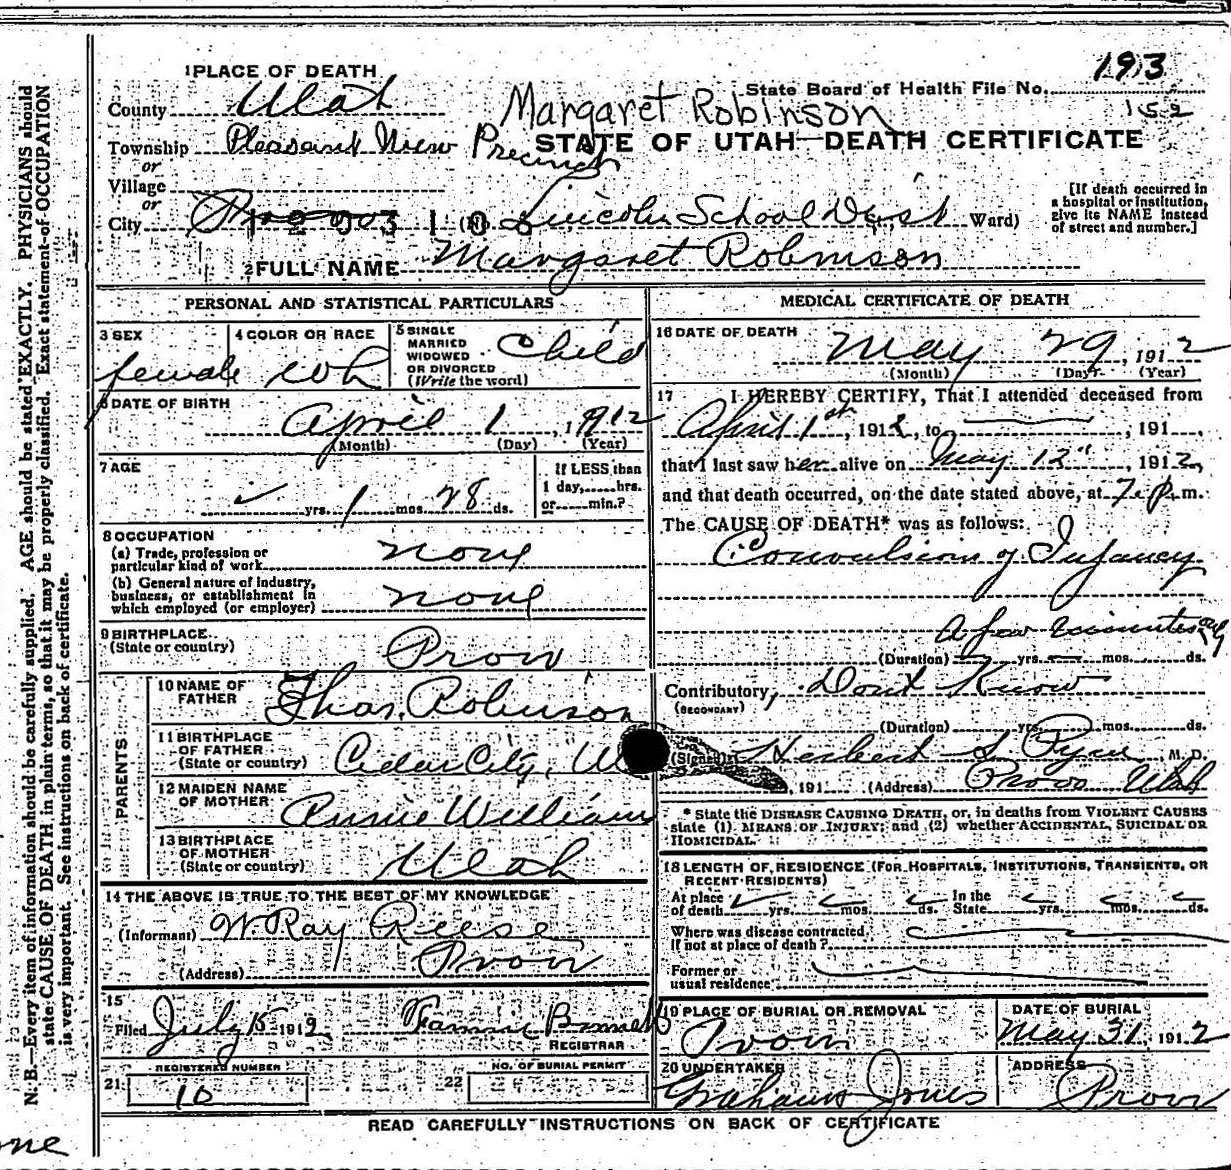 193
1 PLACE OF DEATH
State Board of Health File No.
152
County Utah
Margaret Robinson
STATE OF UTAH—DEATH CERTIFICATE
Township Pleasant View Precinct
or
Village
or
City
Lincoln School Dist Ward)
[If death occurred in a hospital or institution, give its NAME instead of street and number.]
2 FULL NAME Margaret Robinson
PERSONAL AND STATISTICAL PARTICULARS
3 SEX female
4 COLOR OR RACE wh
5 SINGLE MARRIED WIDOWED OR DIVORCED (Write the word) Child
6 DATE OF BIRTH
April 1, 1912
(Month) (Day) (Year)
7 AGE
yrs. 1 mos. 28 ds.
If LESS than 1 day,......hrs. or......min.?
8 OCCUPATION
(a) Trade, profession or particular kind of work none
(b) General nature of industry, business, or establishment in which employed (or employer) none
9 BIRTHPLACE
(State or country) Provo
PARENTS
10 NAME OF FATHER Thos. Robinson
11 BIRTHPLACE OF FATHER (State or country) Cedar City, U
12 MAIDEN NAME OF MOTHER Annie William
13 BIRTHPLACE OF MOTHER (State or country) Utah
14 THE ABOVE IS TRUE TO THE BEST OF MY KNOWLEDGE
(Informant) W Ray Reese
(Address) Provo
15
Filed July 15 1912
REGISTRAR
REGISTERED NUMBER
21 10
NO. OF BURIAL PERMIT
22
MEDICAL CERTIFICATE OF DEATH
16 DATE OF DEATH
May 29, 1912
(Month) (Day) (Year)
17 I HEREBY CERTIFY, That I attended deceased from
April 1st, 1912, to , 191
that I last saw her alive on May 12", 1912,
and that death occurred, on the date stated above, at 7 p.m.
The CAUSE OF DEATH* was as follows:
Convulsion of Infancy
a few minutes only
(Duration) yrs. mos. ds.
Contributory, Dont Know
(SECONDARY)
(Duration) yrs. mos. ds.
(Signed) Herbert S. Pyne M.D.
, 191 (Address) Provo Utah
* State the DISEASE CAUSING DEATH, or, in deaths from VIOLENT CAUSES state (1) MEANS OF INJURY; and (2) whether ACCIDENTAL, SUICIDAL OR HOMICIDAL.
18 LENGTH OF RESIDENCE (FOR HOSPITALS, INSTITUTIONS, TRANSIENTS, OR RECENT RESIDENTS)
At place of death yrs. mos. ds. In the State yrs. mos. ds.
Where was disease contracted, if not at place of death?
Former or usual residence
19 PLACE OF BURIAL OR REMOVAL
Provo
DATE OF BURIAL
May 31, 1912
20 UNDERTAKER
Graham Jones
ADDRESS
Provo
READ CAREFULLY INSTRUCTIONS ON BACK OF CERTIFICATE
N. B.—Every item of information should be carefully supplied. AGE should be stated EXACTLY. PHYSICIANS should
state CAUSE OF DEATH in plain terms, so that it may be properly classified. Exact statement of OCCUPATION
is very important. See instructions on back of certificate.